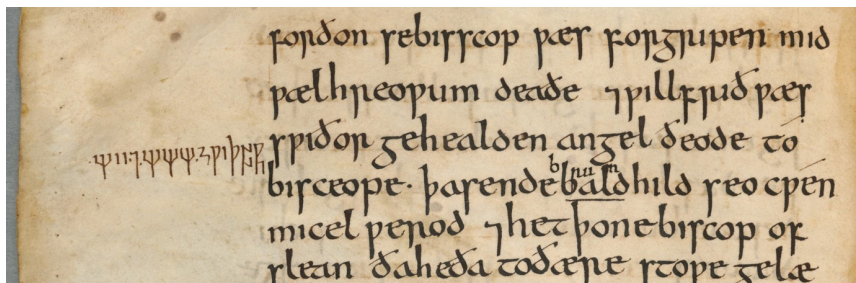 forðon se bisscop ƿæs forgripen mid
ƿælhreoƿum deaðe ⁊ ƿillfrið ƿæs
sƿiðor gehealden angel ðeode to
bisceope· þa sende baldhild seo cƿen
micel ƿerod ⁊ het þone biscop of
slean ða he ða to ðære stoƿe gelæ